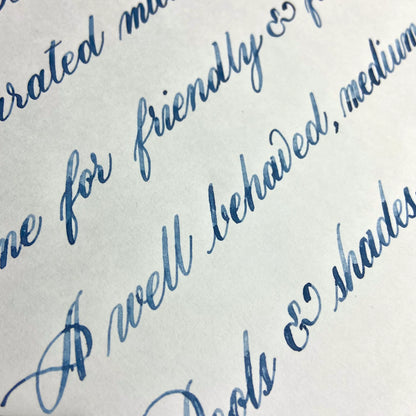 urated
for friendly &
A well behaved, medium
Pools & shades